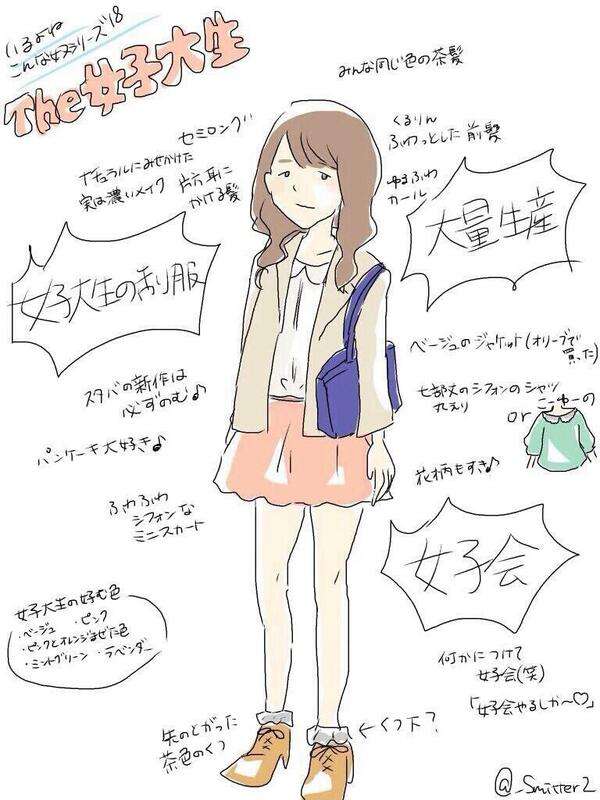 いるよね
こんな女シリーズ18
The女子大生
みんな同じ色の茶髪
セミロング
くるりん
ふわっとした前髪
ナチュラルにみせかけた
実は濃いメイク
片方耳に
かける髪
ゆるふわ
カール
大量生産
女子大生の制服
ベージュのジャケット(オリーブで
買った)
スタバの新作は
必ずのむ♪
七部丈のシフォンのシャツ
丸えり
or こーゆーの
パンケーキ大好き♪
花柄もすき♪
ふわふわ
シフォンな
ミニスカート
女子会
女子大生の好む色
・ベージュ ・ピンク
・ピンクとオレンジまぜた色
・ミントグリーン ・ラベンダー
何かにつけて
女子会(笑)
「女子会やるしか〜♡」
先のとがった
茶色のくつ
←くつ下?
@_Smitter2